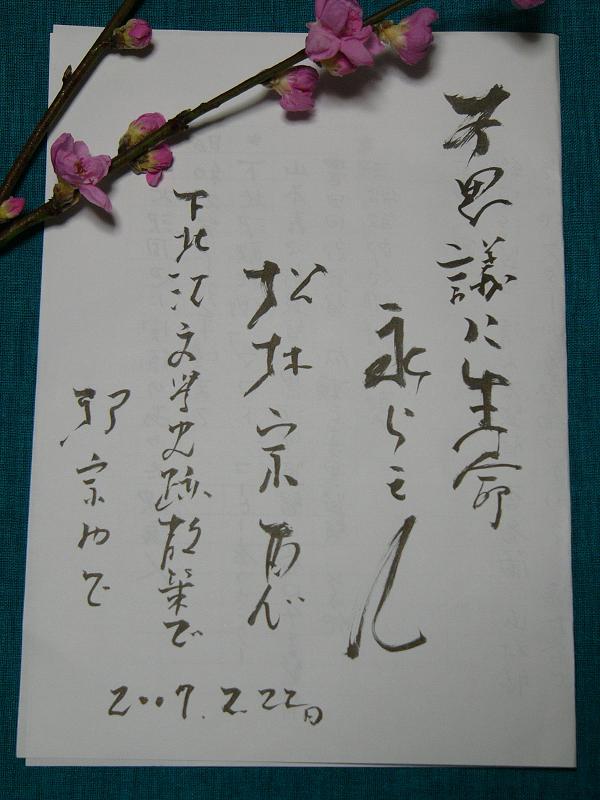 不思議に生命
永ら
松林宗恵
下北沢文学史跡散策で
邪宗門で
2007.2.22日